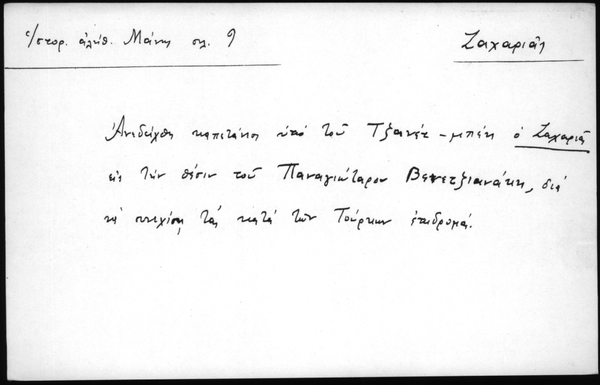 Ἱστορ. ἀλήθ. Μάνης σελ. 9
Ζαχαριᾶς
Ἀνεδείχθη καπετάνιος ὑπό τοῦ Τζανέτ-μπέη ὁ Ζαχαριᾶς
εἰς τήν θέσιν τοῦ Παναγιώταρου Βενετζιανάκη, διά
νά συνεχίσῃ τάς κατά τῶν Τούρκων ἐπιδρομάς.